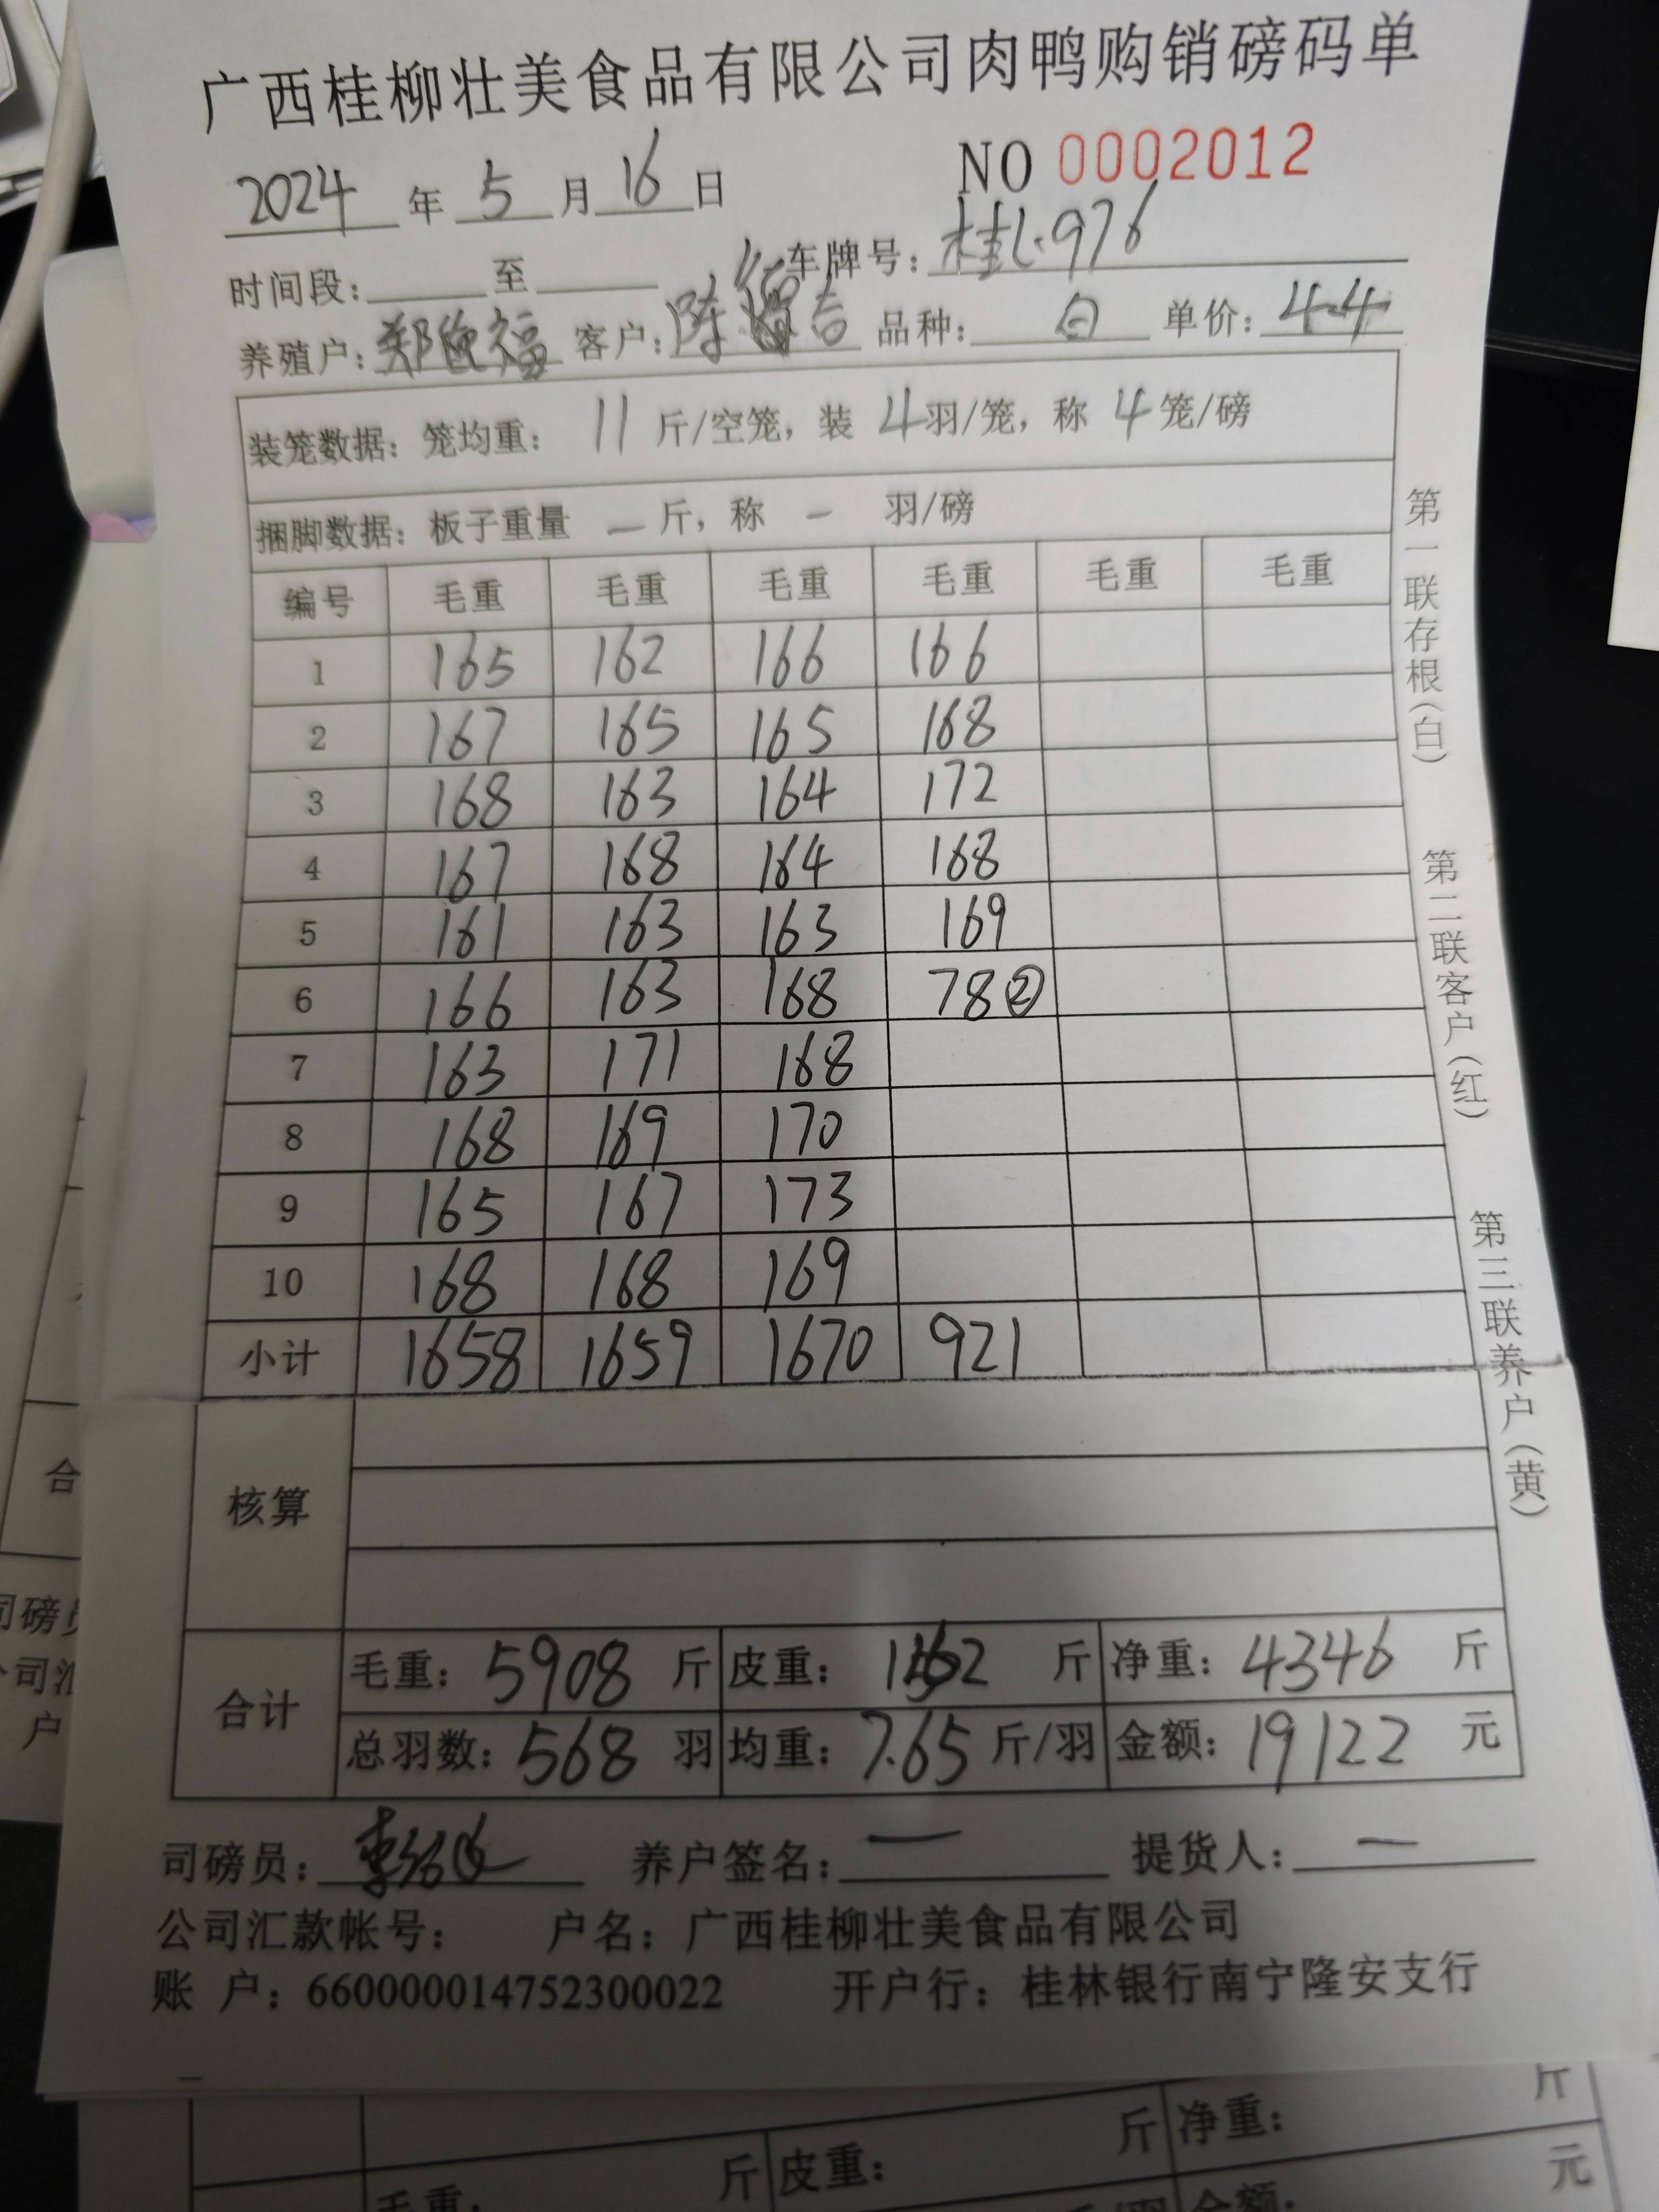 广西桂柳壮美食品有限公司肉鸭购销磅码单
NO 0002012
2024 年 5 月 16 日
时间段: 至 车牌号: 桂L·976
养殖户: 郑 福 客户: 陈 吉 品种: 白 单价: 4.4
装笼数据: 笼均重: 11 斤/空笼, 装 4 羽/笼, 称 4 笼/磅
捆脚数据: 板子重量 — 斤, 称 — 羽/磅
编号 毛重 毛重 毛重 毛重 毛重 毛重
1 165 162 166 166
2 167 165 165 168
3 168 163 164 172
4 167 168 164 168
5 161 163 163 169
6 166 163 168 78②
7 163 171 168
8 168 169 170
9 165 167 173
10 168 168 169
小计 1658 1659 1670 921
核算
合计
毛重: 5908 斤 皮重: 1562 斤 净重: 4346 斤
总羽数: 568 羽 均重: 7.65 斤/羽 金额: 19122 元
司磅员: 养户签名: — 提货人: —
公司汇款帐号: 户名: 广西桂柳壮美食品有限公司
账 户: 660000014752300022 开户行: 桂林银行南宁隆安支行
第一联存根(白)
第二联客户(红)
第三联养户(黄)
合
司磅
公司汇
户
斤 净重:
斤 皮重: 元
毛重: 金额: